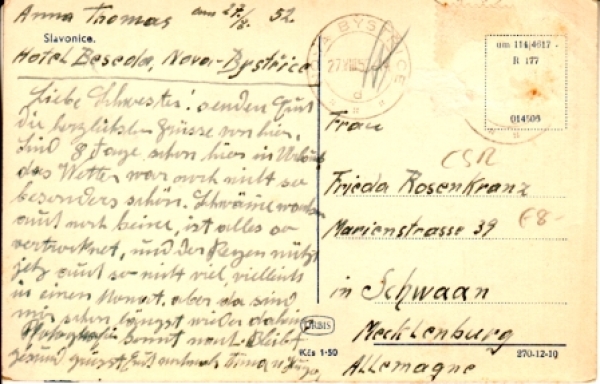 Anna Thomas am 27/8. 52.
Slavonice.
Hotel Beseda, Nova-Bystřice
Liebe Schwester! senden Euch
die herzlichsten Grüsse von hier.
Sind 8 Tage schon hier in Urlaub
das Wetter war noch nicht so
besonders schön. Schwämme wachsen
auch noch keine, ist alles so
vertrocknet, und der Regen nützt
jetz auch so nicht viel, vielleicht
in einen Monat, aber da sind
wir schon längst wieder daheim
Bleibt
gesund grüsst Euch
A BYSTŘICE
27.VIII.52
d
um 114/4617 -
R 177
014506
Frau
ČSR
Frieda Rosenkranz
Marienstrasse 39
€8-
in Schwaan
Mecklenburg
Allemagne
ORBIS
Kčs 1·50
270-12-10